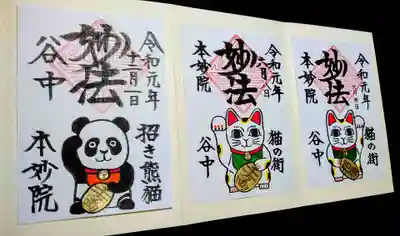 令和元年
十二月一日
妙法
谷中
招き熊猫
本妙院
令和元年
妙法
本妙院
猫の街
谷中
令和元年
妙法
本妙院
猫の街
谷中